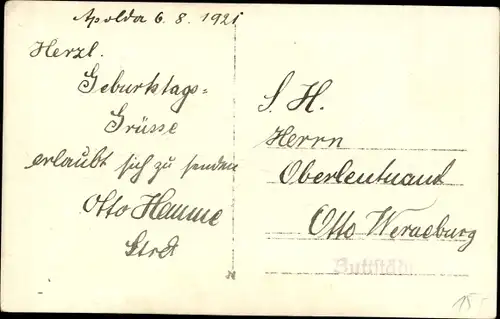 Apolda 6. 8. 1921
Herzl.
Geburtstags=
Grüsse
erlaubt sich zu senden
Otto Hamme
S. H.
Herrn
Oberleutnant
Otto Werneburg
Buttstädt
15.-